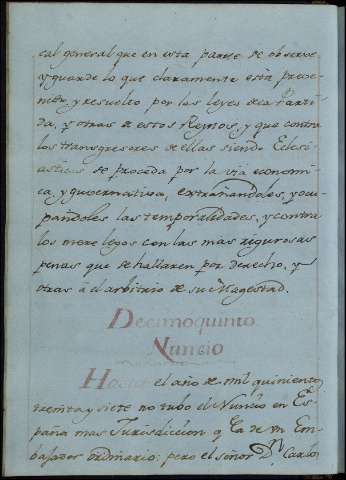 cal general que en esta parte se observe
y guarde lo que claramente está preve-
nido, y resuelto por las leyes de la Parti-
da, y otras de estos Reynos, y que contra
los transgresores de ellas siendo Eclesi-
asticos se proceda por la via economi-
ca, y guvernativa, extrañandoles, y ocu-
pandoles las temporalidades, y contra
los mere legos con las mas rigurosas
penas que se hallaren por derecho, y
otras â el arbitrio de su Magestad.
Decimoquinto
Nuncio
Hasta el año de mil quinientos
treinta y siete no tubo el Nuncio en Es-
paña mas Jurisdiccion q.e la de un Em-
bajador ordinario; pero el señor D.n Carlos